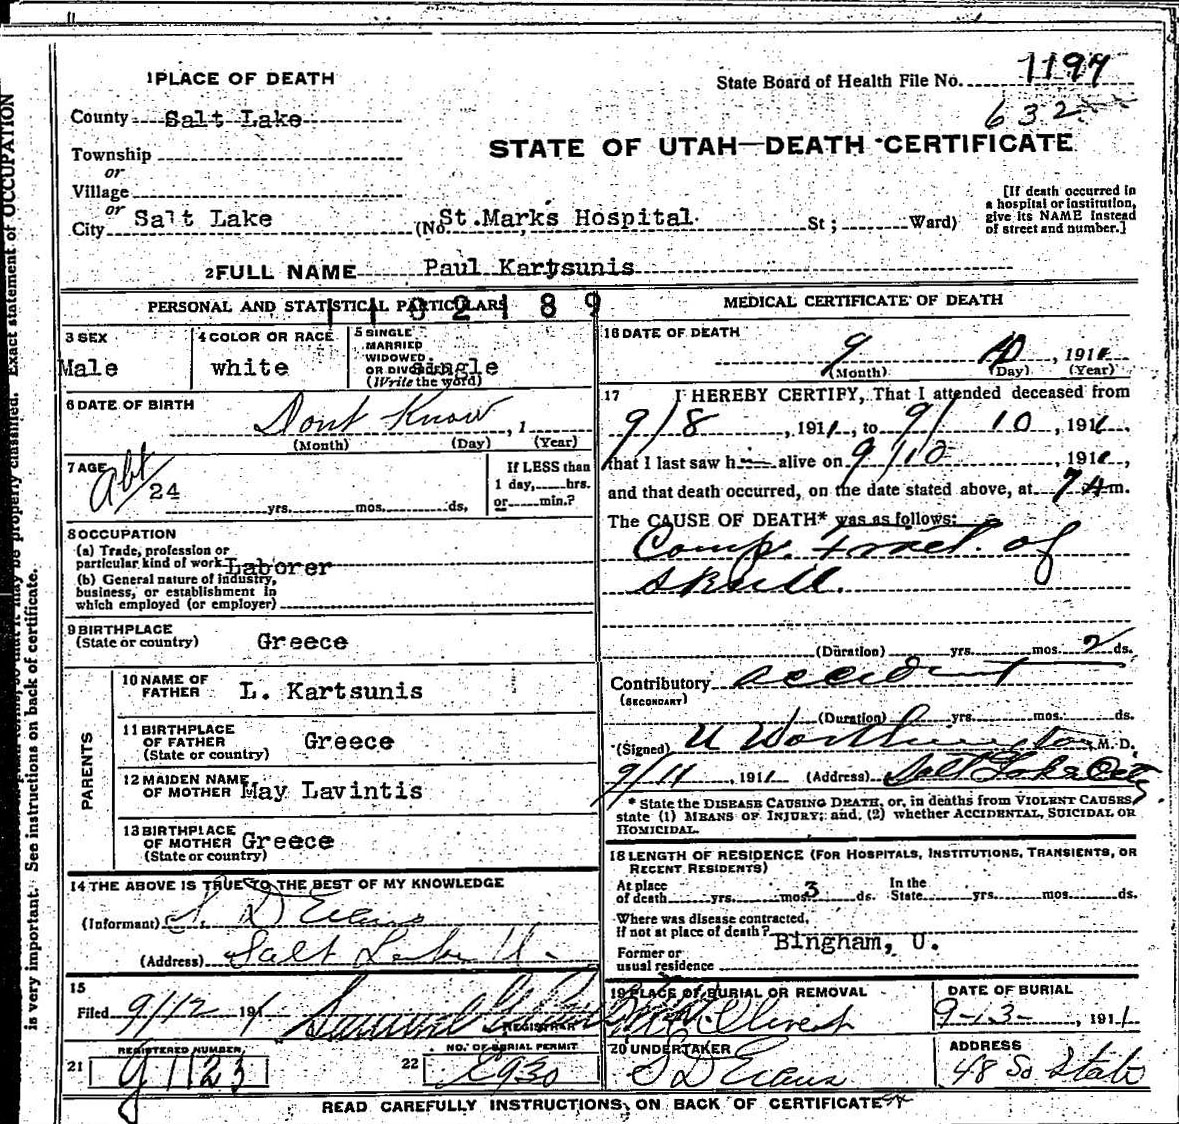 1 PLACE OF DEATH
State Board of Health File No. 1197
632
County Salt Lake
STATE OF UTAH—DEATH CERTIFICATE
Township
or
Village
or
City Salt Lake (No. St. Marks Hospital St; Ward)
[If death occurred in
a hospital or institution,
give its NAME instead
of street and number.]
2 FULL NAME Paul Kartsunis
PERSONAL AND STATISTICAL PARTICULARS
3 SEX
Male
4 COLOR OR RACE
white
5 SINGLE
MARRIED
WIDOWED
OR DIVORCED
(Write the word)
Single
6 DATE OF BIRTH
Dont Know, 1
(Month) (Day) (Year)
7 AGE
abt 24 yrs. mos. ds.
If LESS than
1 day, hrs.
or min.?
8 OCCUPATION
(a) Trade, profession or
particular kind of work Laborer
(b) General nature of industry,
business, or establishment in
which employed (or employer)
9 BIRTHPLACE
(State or country) Greece
PARENTS
10 NAME OF
FATHER L. Kartsunis
11 BIRTHPLACE
OF FATHER
(State or country) Greece
12 MAIDEN NAME
OF MOTHER May Lavintis
13 BIRTHPLACE
OF MOTHER
(State or country) Greece
14 THE ABOVE IS TRUE TO THE BEST OF MY KNOWLEDGE
(Informant) S. D Evans
(Address) Salt Lake U.
15
Filed 9/12 191
REGISTRAR
21 REGISTERED NUMBER
g 1123
22 NO. OF BURIAL PERMIT
E930
MEDICAL CERTIFICATE OF DEATH
16 DATE OF DEATH
9 10, 1911
(Month) (Day) (Year)
17 I HEREBY CERTIFY, That I attended deceased from
9/8, 1911, to 9/10, 1911,
that I last saw h alive on 9/10 1911,
and that death occurred, on the date stated above, at 7 A m.
The CAUSE OF DEATH* was as follows:
Comp. Fract. of
Skull.
(Duration) yrs. mos. 2 ds.
Contributory accident
(SECONDARY)
(Duration) yrs. mos. ds.
(Signed) U Worthington M.D.
9/11, 1911 (Address) Salt Lake City
* State the DISEASE CAUSING DEATH, or, in deaths from VIOLENT CAUSES,
state (1) MEANS OF INJURY; and, (2) whether ACCIDENTAL, SUICIDAL OR
HOMICIDAL.
18 LENGTH OF RESIDENCE (FOR HOSPITALS, INSTITUTIONS, TRANSIENTS, OR
RECENT RESIDENTS)
At place
of death yrs. mos. 3 ds. In the
State yrs. mos. ds.
Where was disease contracted,
If not at place of death? Bingham, U.
Former or
usual residence
19 PLACE OF BURIAL OR REMOVAL
Mt. Olivet
DATE OF BURIAL
9-13-, 1911
20 UNDERTAKER
S D Evans
ADDRESS
48 So State
READ CAREFULLY INSTRUCTIONS ON BACK OF CERTIFICATE
is very important. See instructions on back of certificate.
properly classified. Exact statement of OCCUPATION